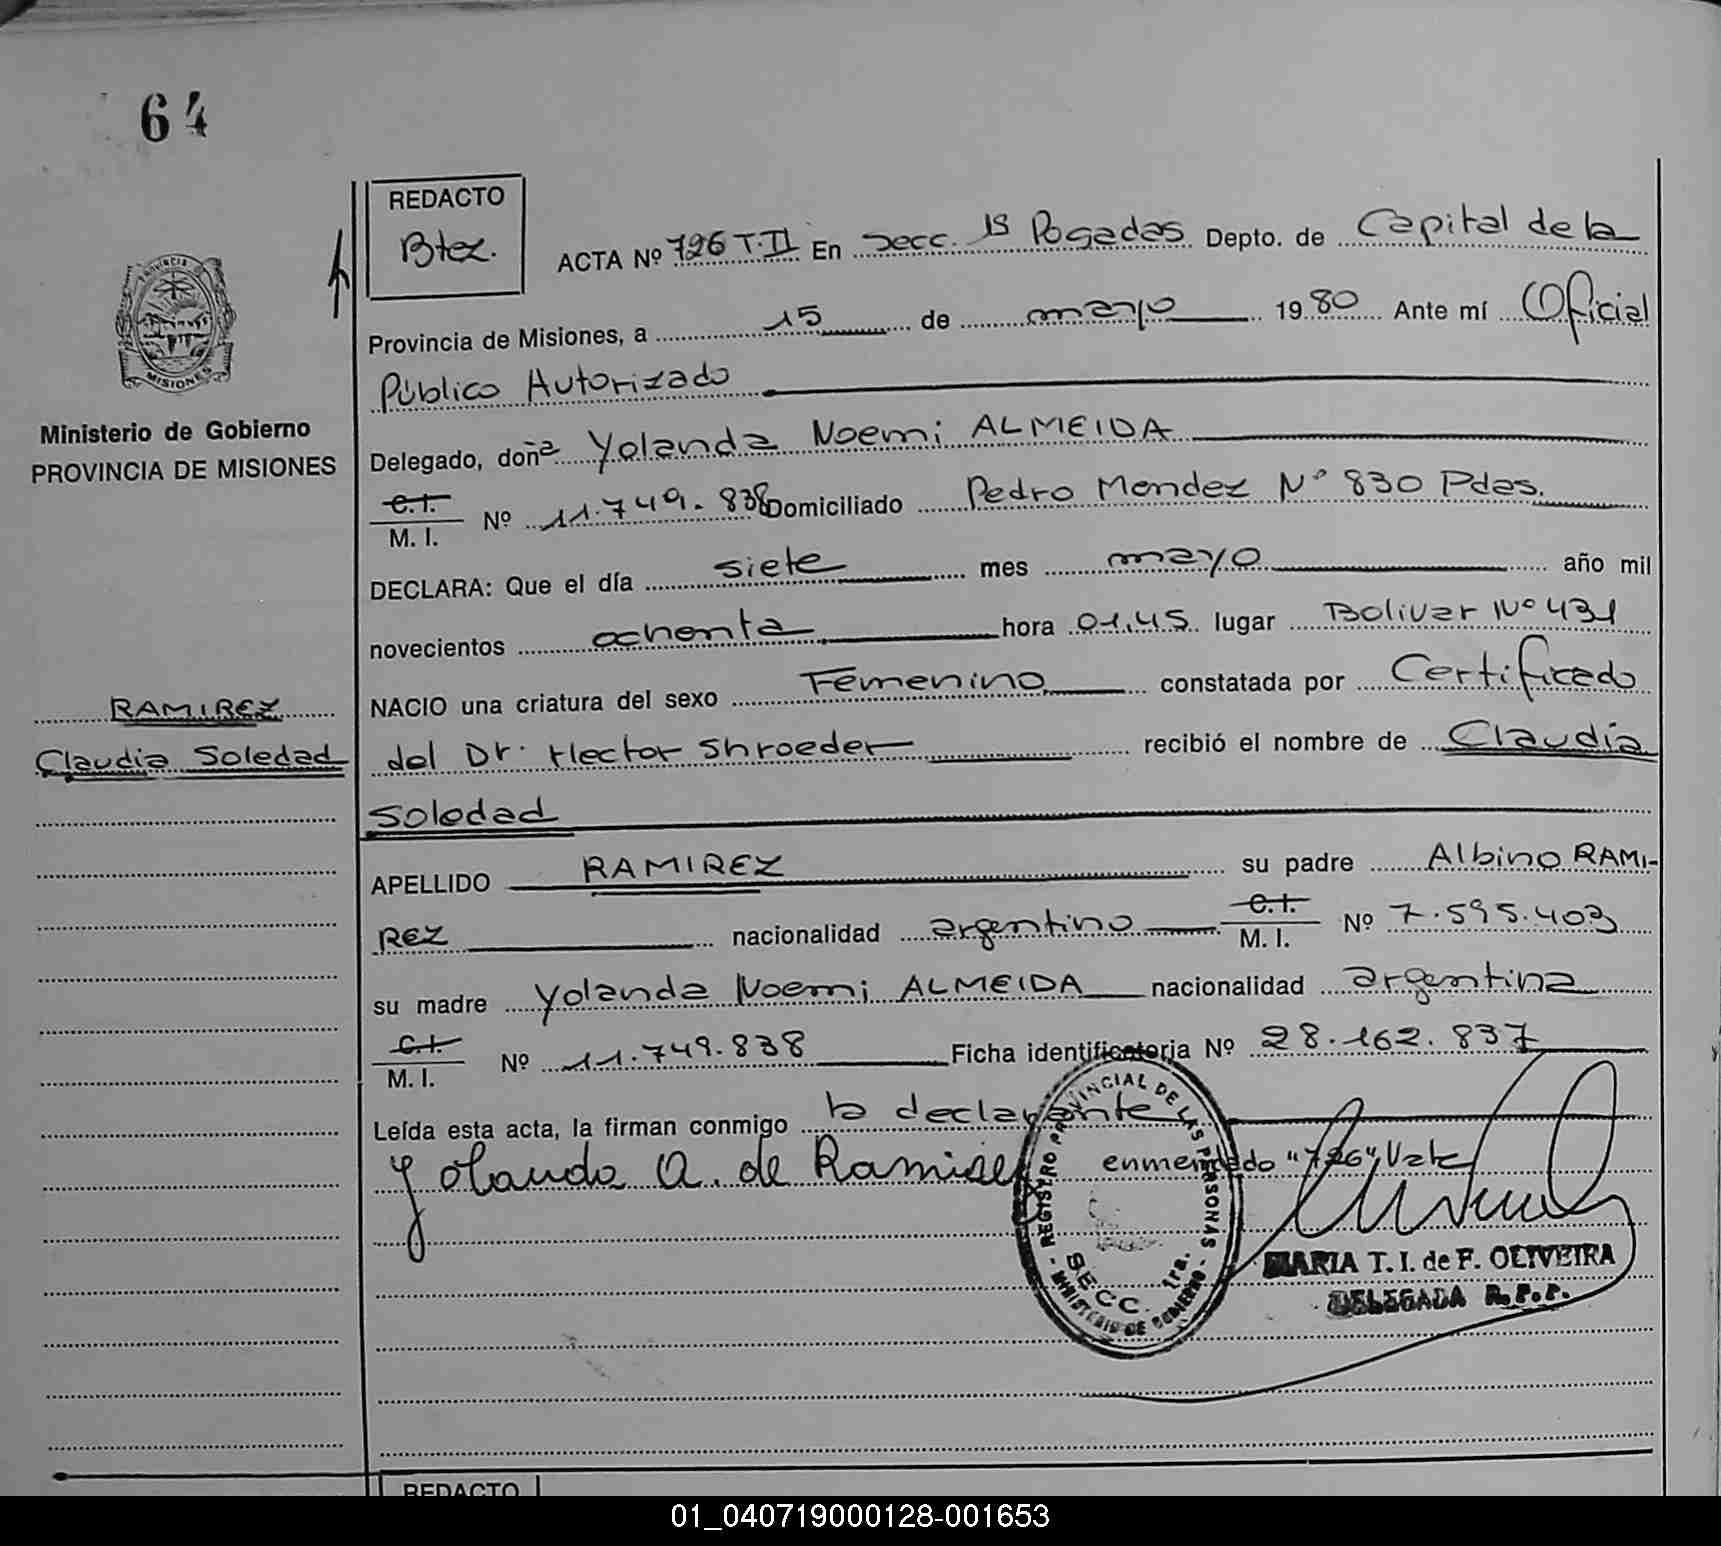 64
REDACTO
Btez.
ACTA Nº 726 T.II En Secc. 1ª Posadas Depto. de Capital de la
Provincia de Misiones, a 15 de mayo 1980 Ante mí Oficial
Público Autorizado
PROVINCIA
MISIONES
Ministerio de Gobierno
PROVINCIA DE MISIONES
Delegado, doña Yolanda Noemi ALMEIDA
C.I.
M. I. Nº 11.749.838 Domiciliado Pedro Mendez Nº 830 Pdas.
DECLARA: Que el día siete mes mayo año mil
novecientos ochenta hora 01,45 lugar Bolivar Nº 431
NACIO una criatura del sexo Femenino constatada por Certificado
RAMIREZ
Claudia Soledad
del Dr. Hector Shroeder recibió el nombre de Claudia
Soledad
APELLIDO RAMIREZ su padre Albino RAMI-
REZ nacionalidad argentino C.I. M. I. Nº 7.595.403
su madre Yolanda Noemi ALMEIDA nacionalidad argentina
C.I.
M. I. Nº 11.749.838 Ficha identificatoria Nº 28.162.837
Leída esta acta, la firman conmigo la declarante
Yolanda A. de Ramirez enmendado "726", Vale
REGISTRO PROVINCIAL DE LAS PERSONAS
SECC. 1ra.
MINISTERIO DE GOBIERNO
MARIA T. I. de F. OLIVEIRA
DELEGADA R.P.P.
REDACTO
01_040719000128-001653